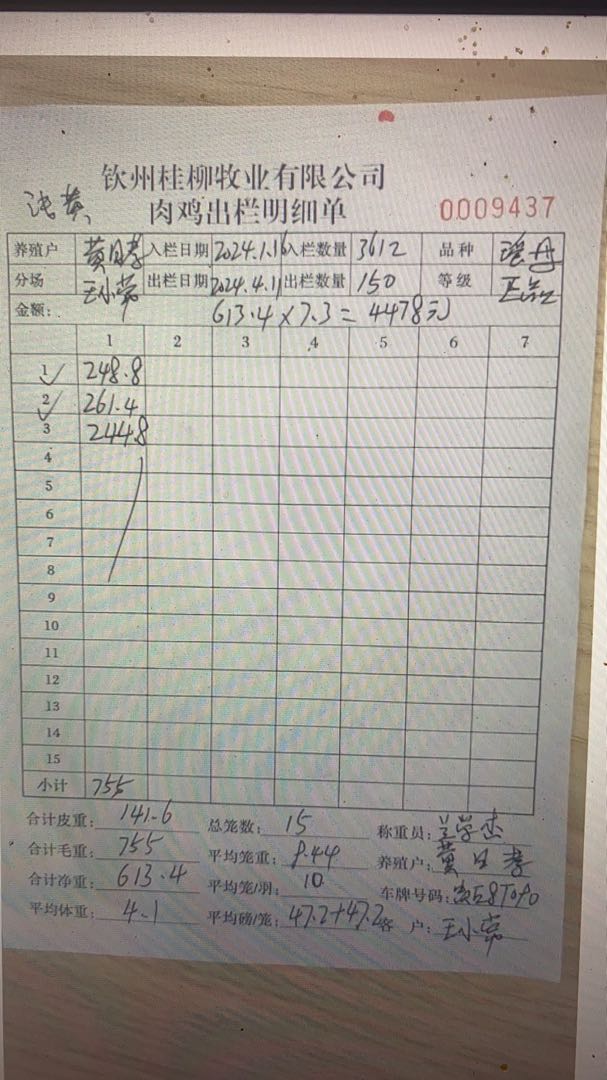 钦州桂柳牧业有限公司
浅黄 肉鸡出栏明细单 0009437
养殖户 黄日孝 入栏日期 2024.1.16 入栏数量 3612 品种
分场 王小常 出栏日期 2024.4.11 出栏数量 150 等级 正品
金额: 613.4×7.3=4478元
1 2 3 4 5 6 7
1 248.8
2 261.4
3 244.8
4
5
6
7
8
9
10
11
12
13
14
15
小计 755
合计皮重: 141.6 总笼数: 15 称重员:
合计毛重: 755 平均笼重: 9.44 养殖户: 黄日孝
合计净重: 613.4 平均笼/羽: 10 车牌号码:
平均体重: 4.1 平均磅/笼: 47.2+47.2 客户: 王小常